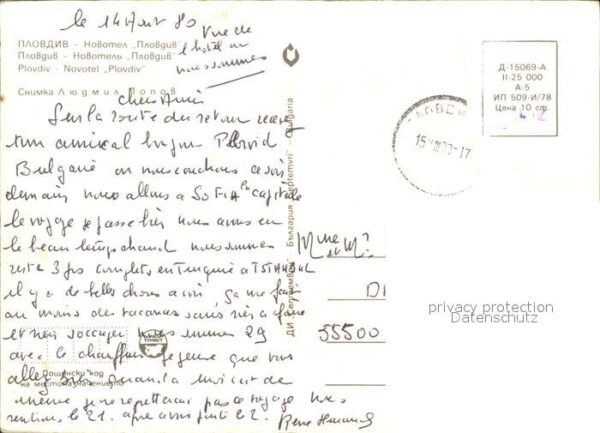 le 14 Aout 80
Vue de
l'hotel ou
nous sommes
ПЛОВДИВ - Новотел „Пловдив"
Пловдив - Новотель „Пловдив"
Plovdiv - Novotel „Plovdiv"
Снимка Людмил Попов
chers Amis
Sur la route du retour recevez
mon amical bonjour Plovid
Bulgarie ou nous couchons ce soir
demain nous allons a SOFIA capitale
le voyage se passe bien nous avons eu
le beau temps chaud nous sommes
resté 3 jours complets en Turquie a ISTANBUL
il y a de belles choses a voir, ça me fait
au moins des vacances sans rien a faire
et rien s'occuper nous sommes 29
avec le chauffeur je pense que vous
allez bien quand a moi c'est de
même je ne regretterai pas ce voyage nous
rentrons le 21. apres avoir parti le 2.
Rene
Пощенски код
на местоназначението
ДИ „Септември" България Septemvri Bulgaria
Д-15069-А
II-25 000
А-5
ИП 509-И/78
Цена 10 ст.
ПЛОВДИВ
15 VIII 80-17
Mme
et Mr
DI
55500
privacy protection
Datenschutz